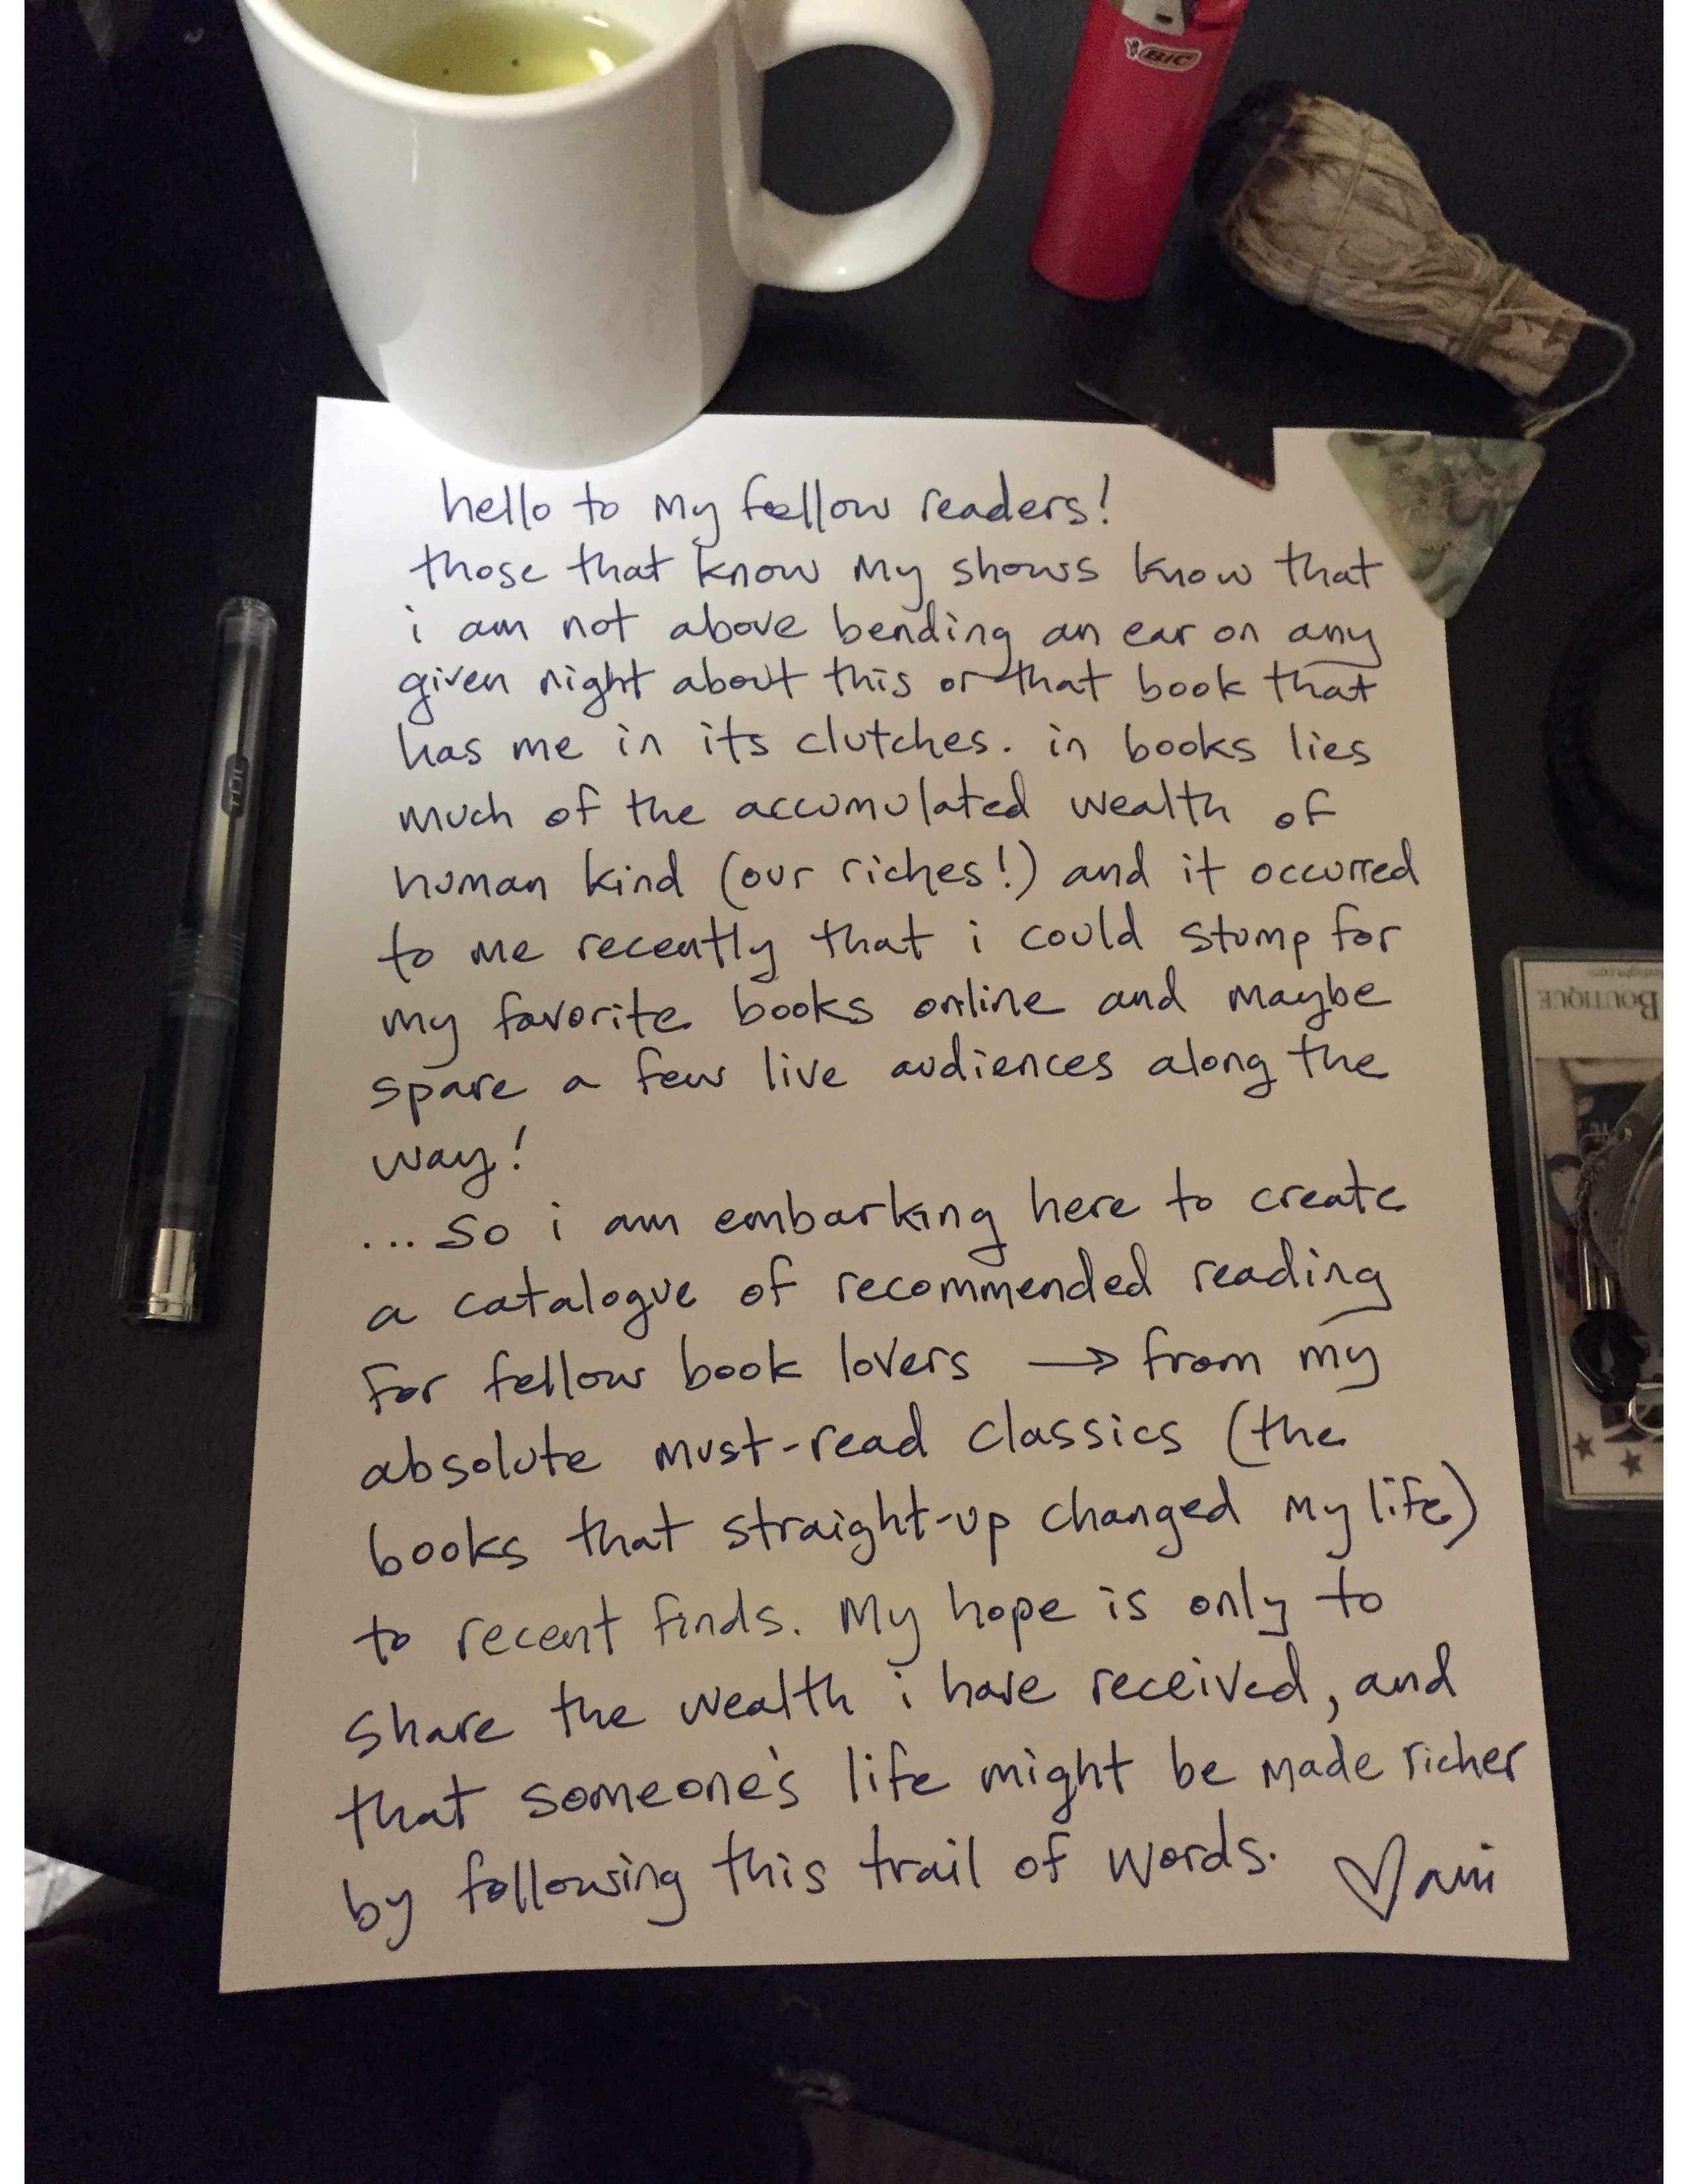 BIC
hello to my fellow readers!
those that know my shows know that
i am not above bending an ear on any
given night about this or that book that
has me in its clutches. in books lies
much of the accumulated wealth of
human kind (our riches!) and it occurred
to me recently that i could stump for
my favorite books online and maybe
spare a few live audiences along the
way!
... so i am embarking here to create
a catalogue of recommended reading
for fellow book lovers → from my
absolute must-read classics (the
books that straight-up changed my life)
to recent finds. My hope is only to
share the wealth i have received, and
that someone's life might be made richer
by following this trail of words. ♡ ani
TUL
BOUTIQUE